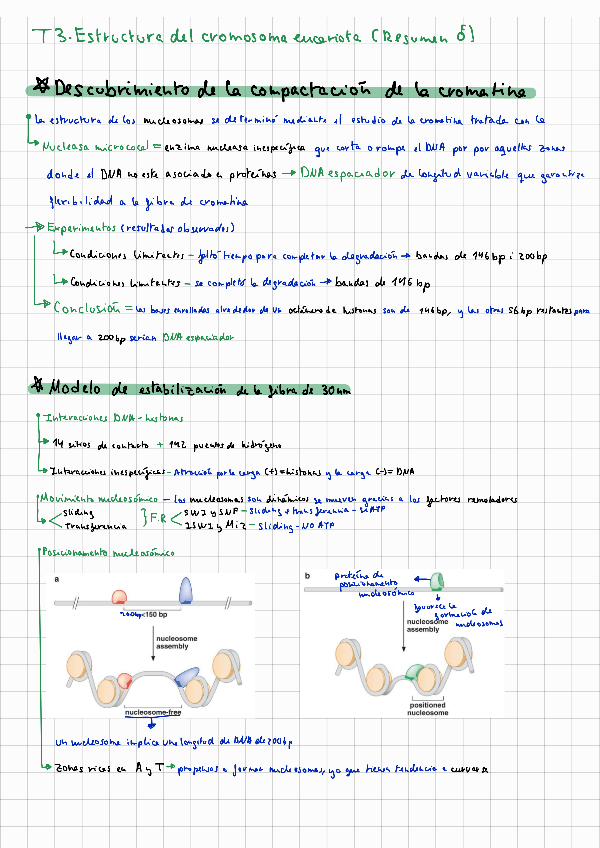 T3. Estructura del cromosoma eucariota (Resumen 5)
Descubrimiento de la compactación de la cromatina
La estructura de los nucleosomas se determinó mediante el estudio de la cromatina tratada con la
Nucleasa micrococal = enzima nucleasa inespecífica que corta o rompe el DNA por por aquellas zonas
donde el DNA no este asociado a proteínas → DNA espaciador de longitud variable que garantiza
flexibilidad a la fibra de cromatina
Experimentos (resultados observados)
Condiciones limitantes - faltó tiempo para completar la degradación → bandas de 146 bp i 200bp
Condiciones limitantes - se completó la degradación → bandas de 146 bp
Conclusión = las bases enrolladas alrededor de un octámero de histonas son de 146bp, y las otras 56bp restantes para
llegar a 200bp serían DNA espaciador
Modelo de estabilización de la fibra de 30nm
Interacciones DNA-histonas
14 sitios de contacto + 142 puentes de hidrógeno
Interacciones inespecíficas - Atracción por la carga (+) = histonas y la carga (-) = DNA
Movimiento nucleosómico - los nucleosomas son dinámicos se mueven gracias a los factores remodeladores
Sliding
Transferencia
F.R
SWI y SNF - Sliding + transferencia - SI ATP
ISWI y Mi2 - Sliding - NO ATP
Posicionamiento nucleosómico
a
200bp <150 bp
nucleosome
assembly
nucleosome-free
b
proteína de
posicionamiento
nucleosómico
favorece la
formación de
nucleosomas
nucleosome
assembly
positioned
nucleosome
Un nucleosoma implica una longitud de DNA de 200bp
Zonas ricas en A y T → propensas a formar nucleosomas, ya que tienen tendencia a curvarse